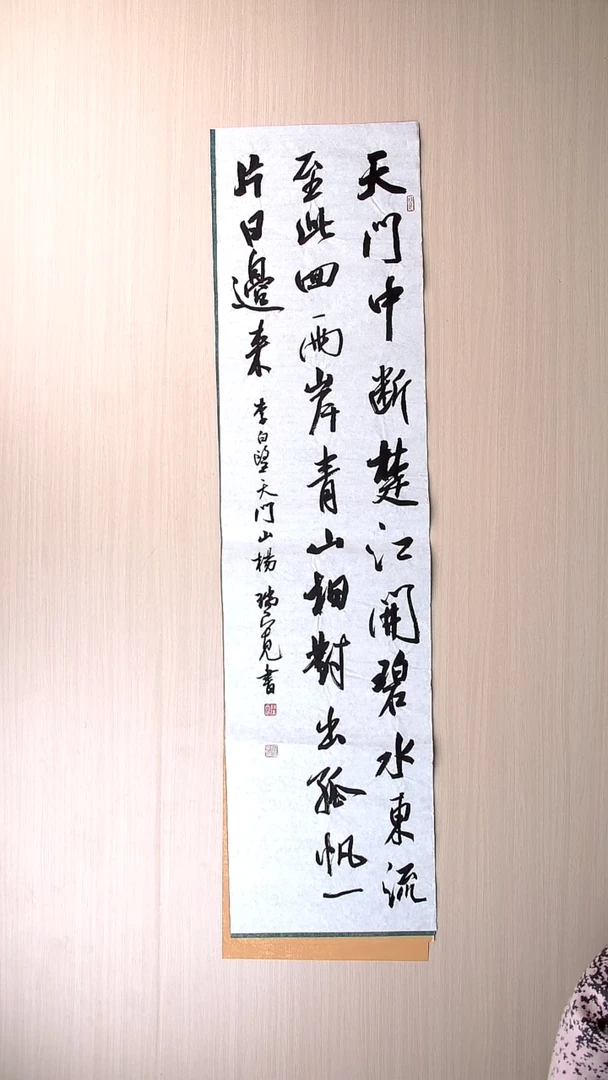 天門中断楚江開碧水東流
至此回兩岸青山相對出孤帆一
片日邊來 李白望天門山楊瑞寬書